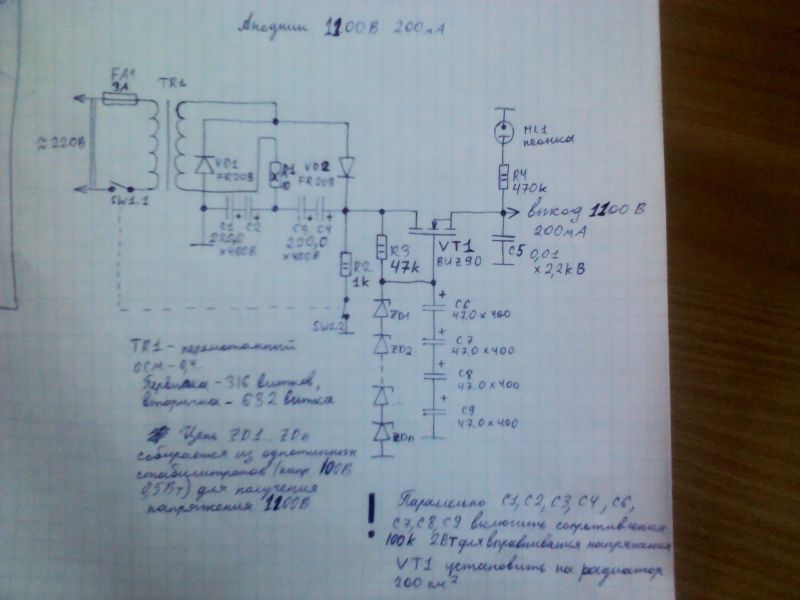 Анодник 1100В 200мА
FA1
3А
TR1
≈220В
SW1.1
VD1
FR209
R1
10
VD2
FR209
C1 C2
220,0
×400В
C3 C4
220,0
×400В
R2
1k
SW1.2
R3
47k
VT1
BUZ90
HL1
неонка
R4
470k
выход 1100 В
200мА
C5 0,01
× 2,2kВ
ZD1
ZD2
...
ZDn
C6
47,0×400
C7
47,0×400
C8
47,0×400
C9
47,0×400
TR1 - перемотанный
ОСМ-0,4.
Первичка - 316 витков,
вторичка - 632 витка
* Цепь ZD1...ZDn
собирается из однотипных
стабилитронов (напр 100В
0,5Вт) для получения
напряжения 1100В
! Параллельно C1, C2, C3, C4, C6,
C7, C8, C9 включить сопротивления
100k 2Вт для выравнивания напряжения
VT1 установить на радиатор
200 см²